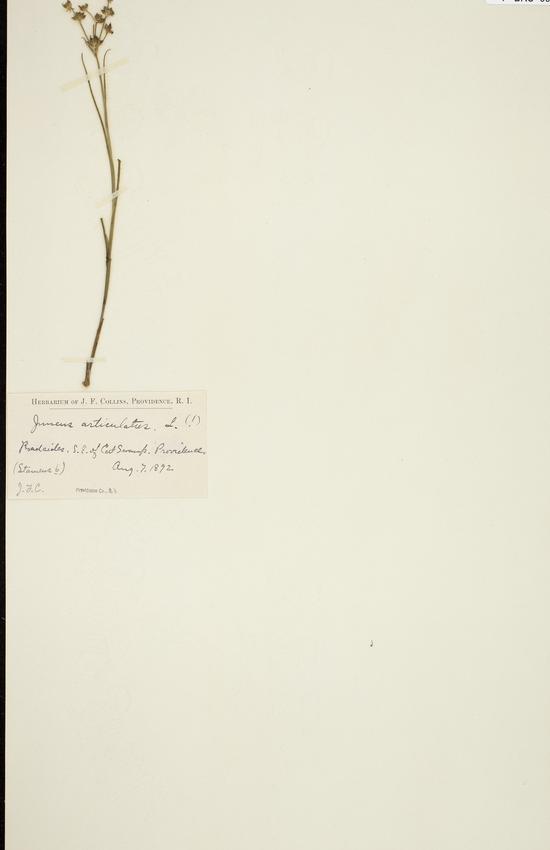 HERBARIUM OF J. F. COLLINS, PROVIDENCE, R. I.
Juncus articulatus, L. (!)
Roadsides, S.E. of Cat Swamp, Providence,
(Stamens 6) Aug. 7, 1892
J.F.C. Providence Co., R. I.